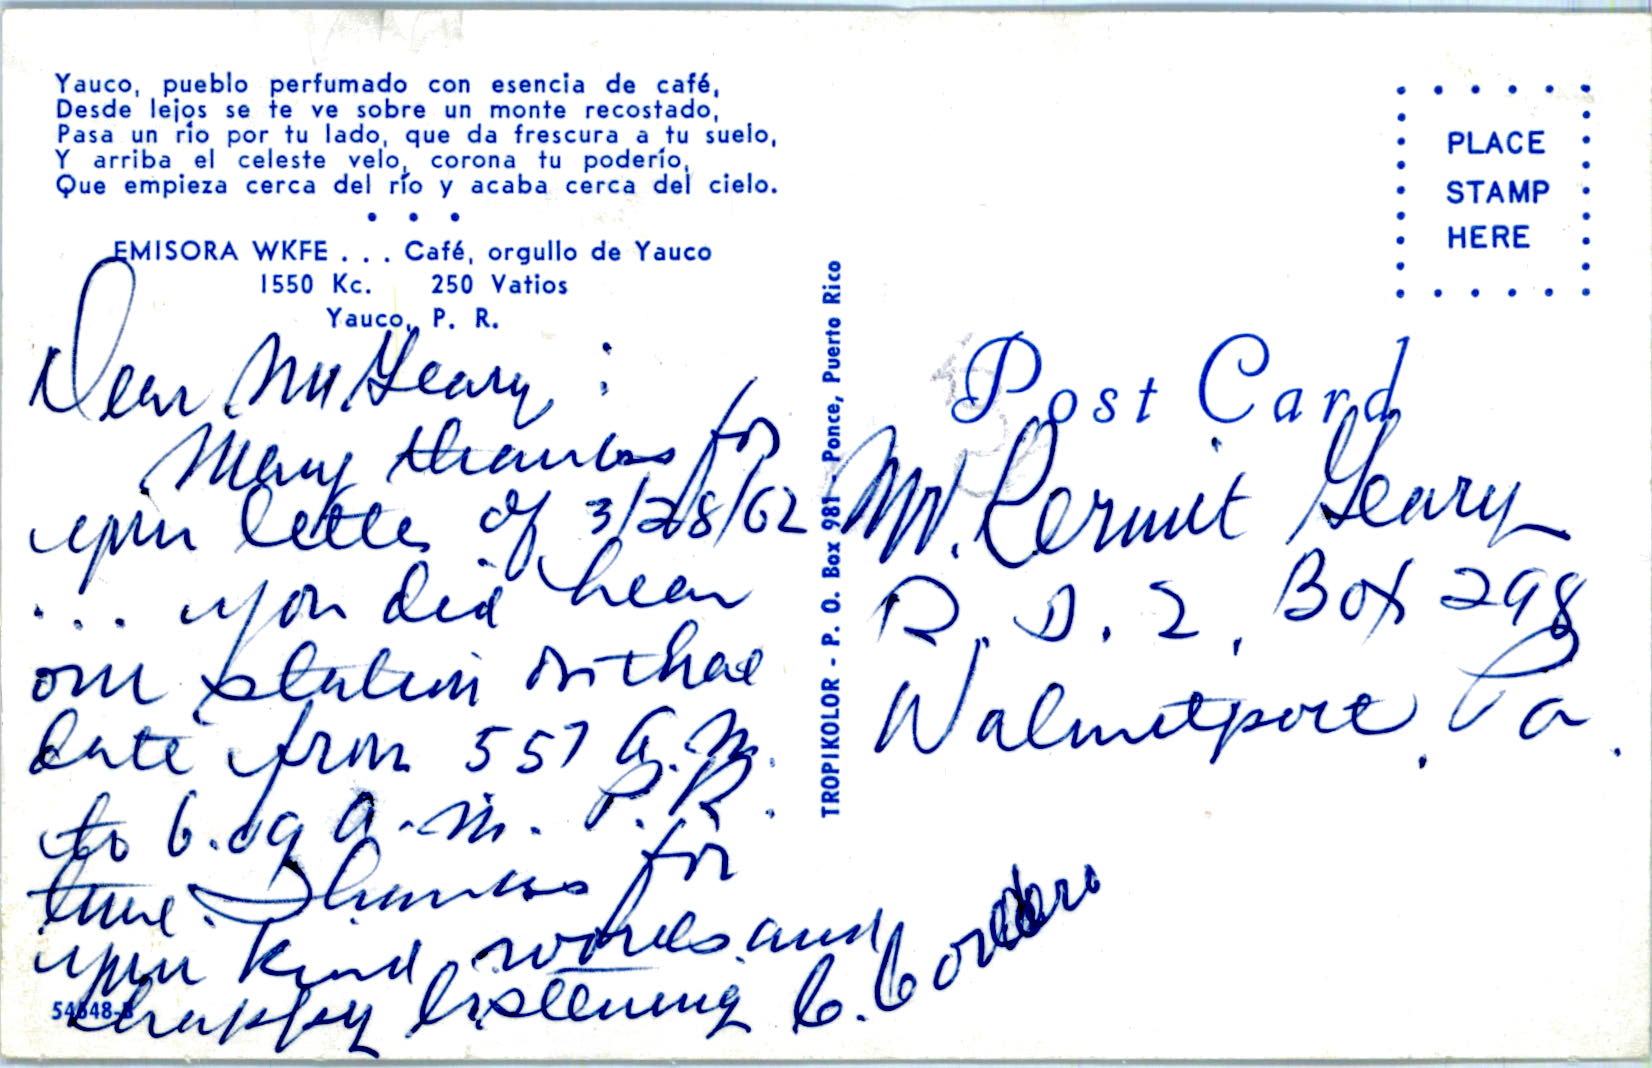 Yauco, pueblo perfumado con esencia de café,
Desde lejos se te ve sobre un monte recostado,
Pasa un río por tu lado, que da frescura a tu suelo,
Y arriba el celeste velo, corona tu poderío,
Que empieza cerca del río y acaba cerca del cielo.
• • •
EMISORA WKFE . . . Café, orgullo de Yauco
1550 Kc. 250 Vatios
Yauco, P. R.
Dear Mr. Geary :
Many thanks for
your letter of 3/28/62
... you did hear
our station on that
date from 557 A.M.
to 6.09 A.M. P.R.
time. Thanks for
your kind words and
happy listening C. Cordero
54648-B
TROPIKOLOR - P. O. Box 981 - Ponce, Puerto Rico
PLACE
STAMP
HERE
Post Card
Mr. Kermit Geary
R. D. 2, Box 298
Walnutport, Pa.